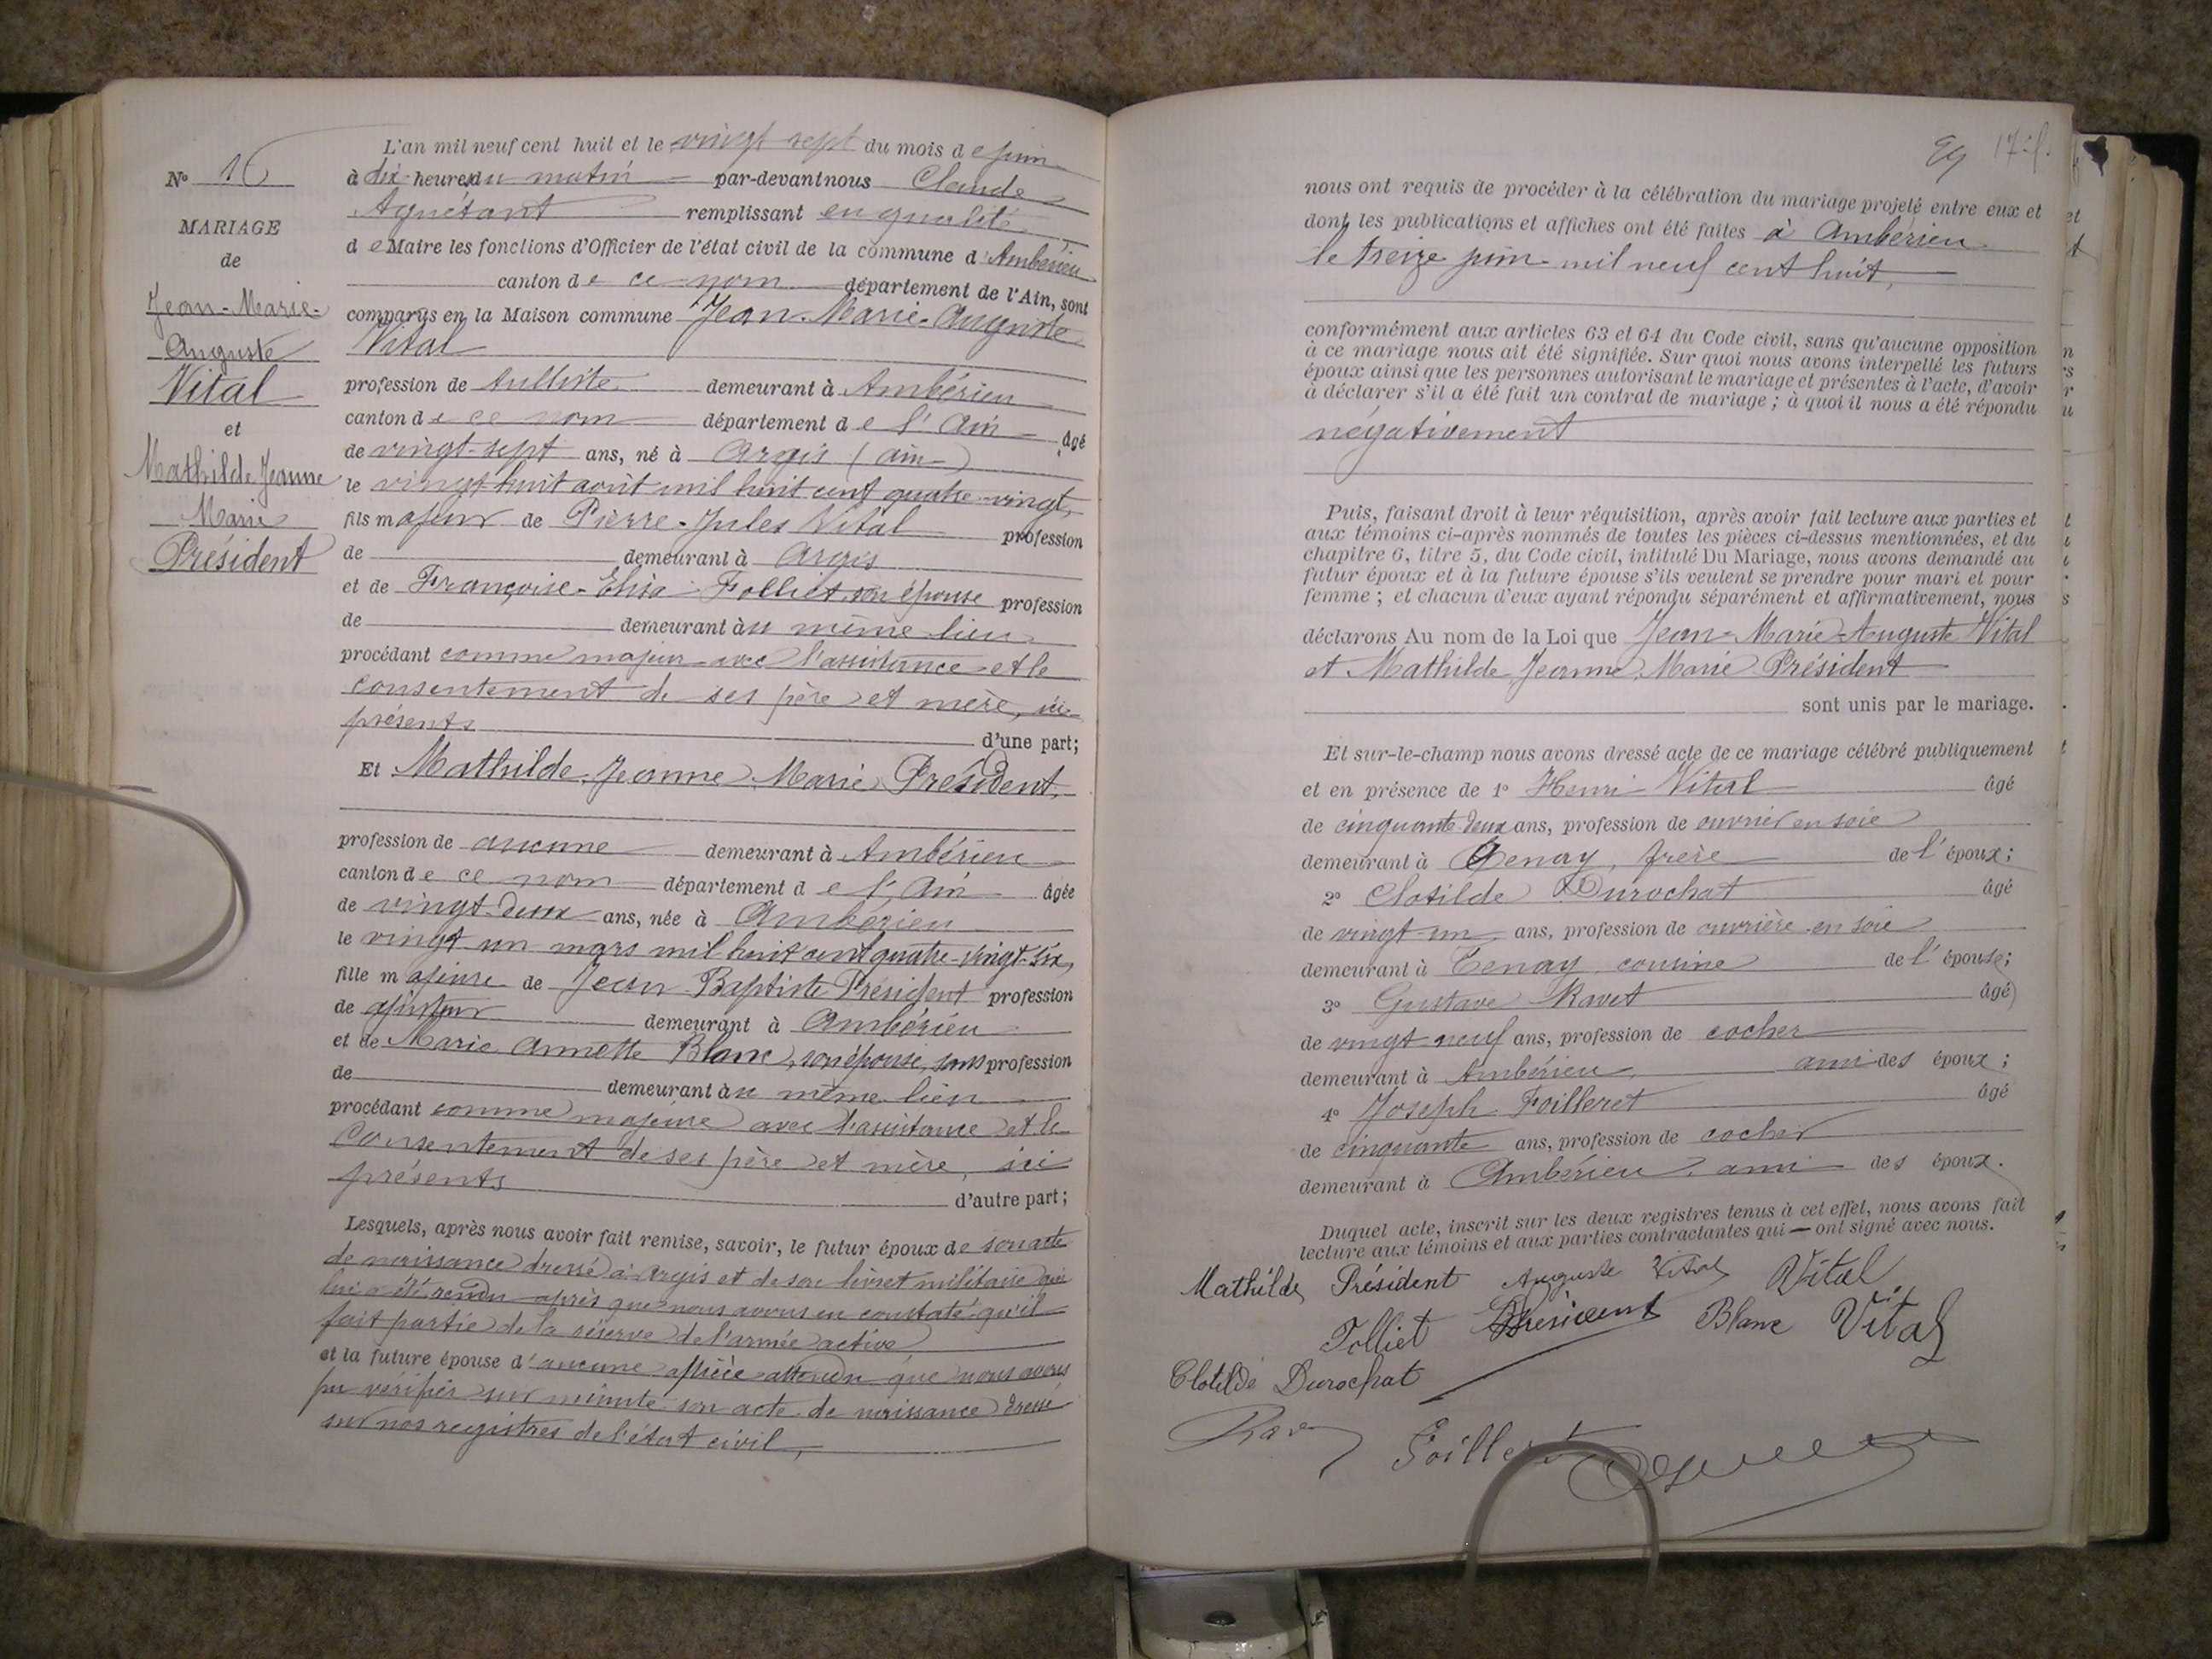 L'an mil neuf cent huit et le vingt sept du mois de juin
No 16
à dix heures du matin par-devant nous Claude
Aguétant remplissant en qualité
MARIAGE
de Maire les fonctions d'Officier de l'état civil de la commune d'Ambérieu
de
canton de ce nom département de l'Ain, sont
Jean-Marie-
comparus en la Maison commune Jean-Marie-Auguste
Auguste
Vital
Vital
profession de tulliste demeurant à Ambérieu
et
canton de ce nom département de l'Ain âgé
Mathilde Jeanne
de vingt-sept ans, né à Argis (Ain)
le vingt huit août mil huit cent quatre-vingt,
Marie
fils majeur de Pierre-Jules Vital profession
Président
de demeurant à Argis
et de Françoise-Elisa Folliet, son épouse profession
de demeurant au même lieu
procédant comme majeur avec l'assistance et le
consentement de ses père et mère, ici
présents d'une part;
Et Mathilde Jeanne Marie Président,
profession de aucune demeurant à Ambérieu
canton de ce nom département de l'Ain âgée
de vingt-deux ans, née à Ambérieu
le vingt-un mars mil huit cent quatre-vingt-six,
fille majeure de Jean Baptiste Président profession
de ajusteur demeurant à Ambérieu
et de Marie Annette Blanc, son épouse, sans profession
de demeurant au même lieu
procédant comme majeure avec l'assistance et le
consentement de ses père et mère, ici
présents d'autre part;
Lesquels, après nous avoir fait remise, savoir, le futur époux de son acte
de naissance dressé à Argis et de son livret militaire qui
lui a été rendu après que nous avons eu constaté qu'il
fait partie de la réserve de l'armée active
et la future épouse d'aucune pièce attendu que nous avons
pu vérifier sur minute son acte de naissance dressé
sur nos registres de l'état civil,
nous ont requis de procéder à la célébration du mariage projeté entre eux et
dont les publications et affiches ont été faites à Ambérieu
le treize juin mil neuf cent huit,
conformément aux articles 63 et 64 du Code civil, sans qu'aucune opposition
à ce mariage nous ait été signifiée. Sur quoi nous avons interpellé les futurs
époux ainsi que les personnes autorisant le mariage et présentes à l'acte, d'avoir
à déclarer s'il a été fait un contrat de mariage ; à quoi il nous a été répondu
négativement
Puis, faisant droit à leur réquisition, après avoir fait lecture aux parties et
aux témoins ci-après nommés de toutes les pièces ci-dessus mentionnées, et du
chapitre 6, titre 5, du Code civil, intitulé Du Mariage, nous avons demandé au
futur époux et à la future épouse s'ils veulent se prendre pour mari et pour
femme ; et chacun d'eux ayant répondu séparément et affirmativement, nous
déclarons Au nom de la Loi que Jean-Marie-Auguste Vital
et Mathilde Jeanne Marie Président
sont unis par le mariage.
Et sur-le-champ nous avons dressé acte de ce mariage célébré publiquement
et en présence de 1º Henri Vital âgé
de cinquante-deux ans, profession de ouvrier en soie
demeurant à Tenay, frère de l'époux;
2º Clotilde Durochat âgé
de vingt-un ans, profession de ouvrière en soie
demeurant à Tenay cousine de l'épouse;
3º Gustave Ravet âgé
de vingt-neuf ans, profession de cocher
demeurant à Ambérieu ami des époux;
4º Joseph Foilleret âgé
de cinquante ans, profession de cocher
demeurant à Ambérieu, ami des époux.
Duquel acte, inscrit sur les deux registres tenus à cet effet, nous avons fait
lecture aux témoins et aux parties contractantes qui ont signé avec nous.
Mathilde Président Auguste Vital Vital
Folliet Président Blanc Vital
Clotilde Durochat
Foilleret